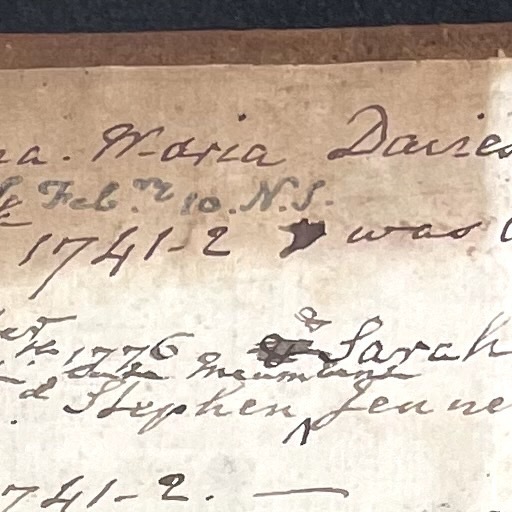 na. Maria Davies
Feb.ry 10. N.S.
1741-2 was
1776 & Sarah
Stephen Jenne
741-2. —